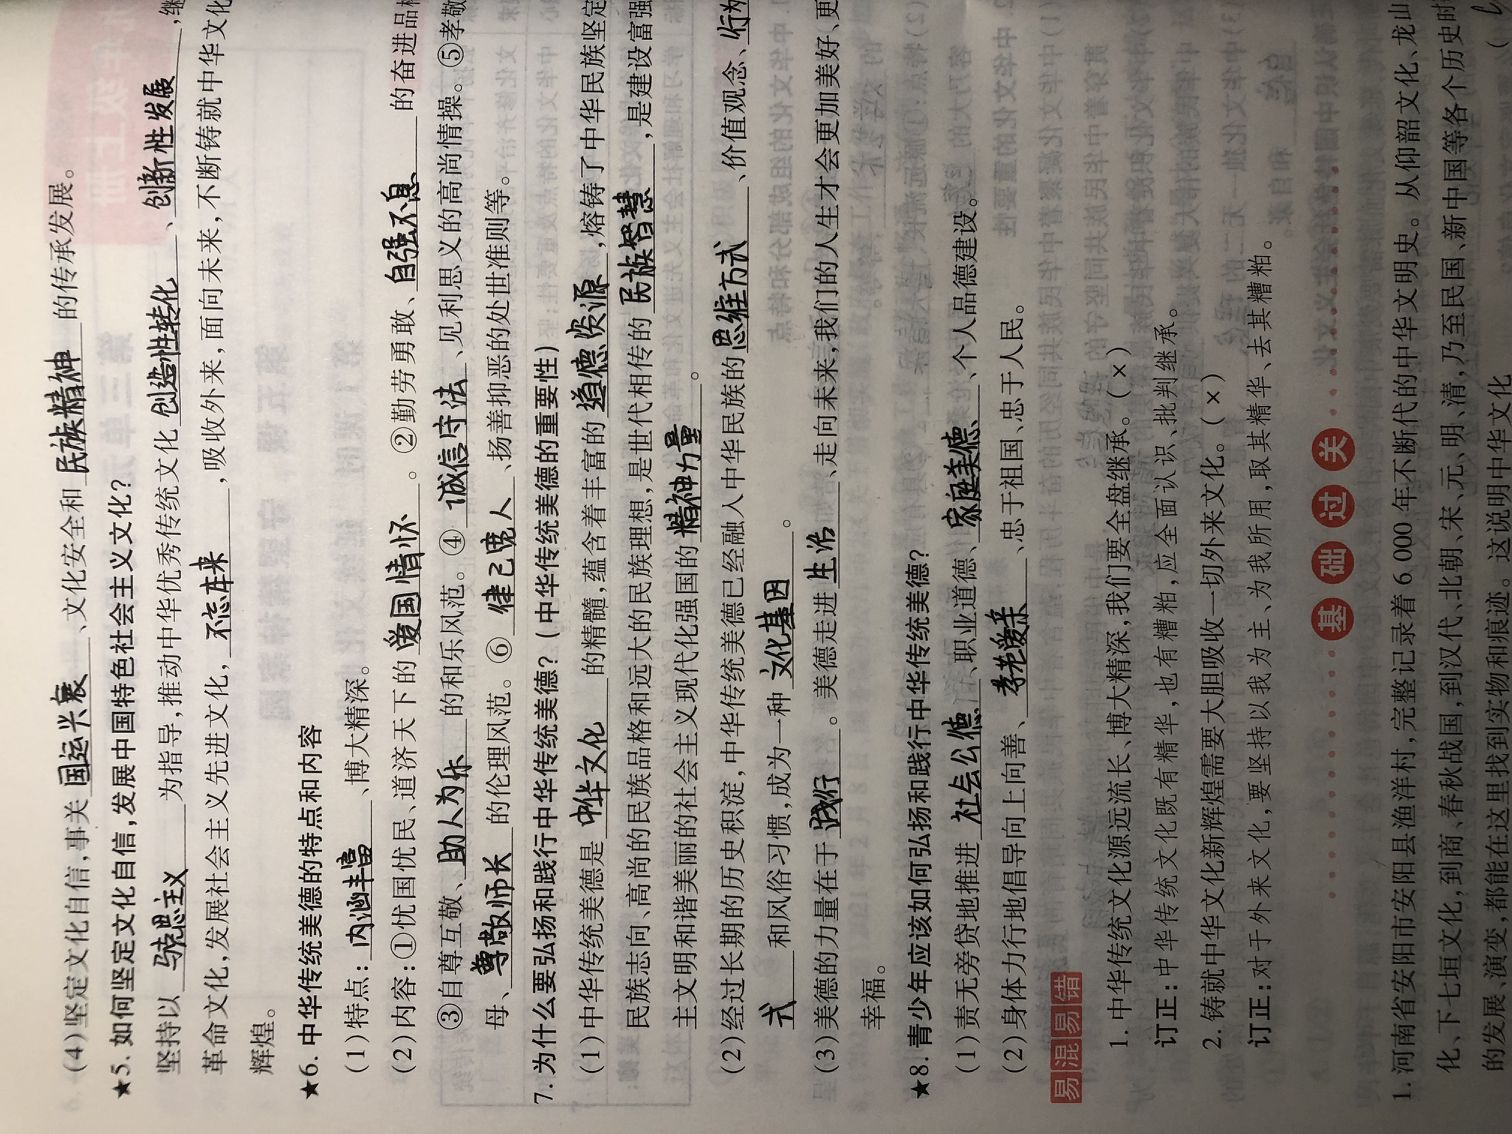 (4)坚定文化自信,事关 国运兴衰 、文化安全和 民族精神 的传承发展。
★5. 如何坚定文化自信,发展中国特色社会主义文化?
坚持以 马克思主义 为指导,推动中华优秀传统文化 创造性转化 、创新性发展 ,继
革命文化,发展社会主义先进文化, 不忘本来 ,吸收外来,面向未来,不断铸就中华文化
辉煌。
★6. 中华传统美德的特点和内容
(1)特点: 内涵丰富 、博大精深。
(2)内容:①忧国忧民、道济天下的 爱国情怀 。②勤劳勇敢、自强不息 的奋进品格
③自尊互敬、助人为乐 的和乐风范。④ 诚信守法 、见利思义的高尚情操。⑤孝敬
母、尊敬师长 的伦理风范。⑥ 律己宽人 、扬善抑恶的处世准则等。
7. 为什么要弘扬和践行中华传统美德?(中华传统美德的重要性)
(1)中华传统美德是 中华文化 的精髓,蕴含着丰富的 道德资源 ,熔铸了中华民族坚定
民族志向、高尚的民族品格和远大的民族理想,是世代相传的 民族智慧 ,是建设富强
主文明和谐美丽的社会主义现代化强国的 精神力量 。
(2)经过长期的历史积淀,中华传统美德已经融入中华民族的 思维方式 、价值观念、行为
式 和风俗习惯,成为一种 文化基因 。
(3)美德的力量在于 践行 。美德走进 生活 、走向未来,我们的人生才会更加美好、更
幸福。
★8. 青少年应该如何弘扬和践行中华传统美德?
(1)责无旁贷地推进 社会公德 、职业道德、家庭美德 、个人品德建设。
(2)身体力行地倡导向上向善、孝老爱亲 、忠于祖国、忠于人民。
易混易错
1. 中华传统文化源远流长、博大精深,我们要全盘继承。(×)
订正:中华传统文化既有精华,也有糟粕,应全面认识、批判继承。
2. 铸就中华文化新辉煌需要大胆吸收一切外来文化。(×)
订正:对于外来文化,要坚持以我为主、为我所用,取其精华、去其糟粕。
基础过关
1. 河南省安阳市安阳县渔洋村,完整记录着6 000年不断代的中华文明史。从仰韶文化、龙山
化、下七垣文化,到商、春秋战国,到汉代、北朝、宋、元、明、清,乃至民国、新中国等各个历史时
的发展、演变,都能在这里找到实物和痕迹。这说明中华文化 (